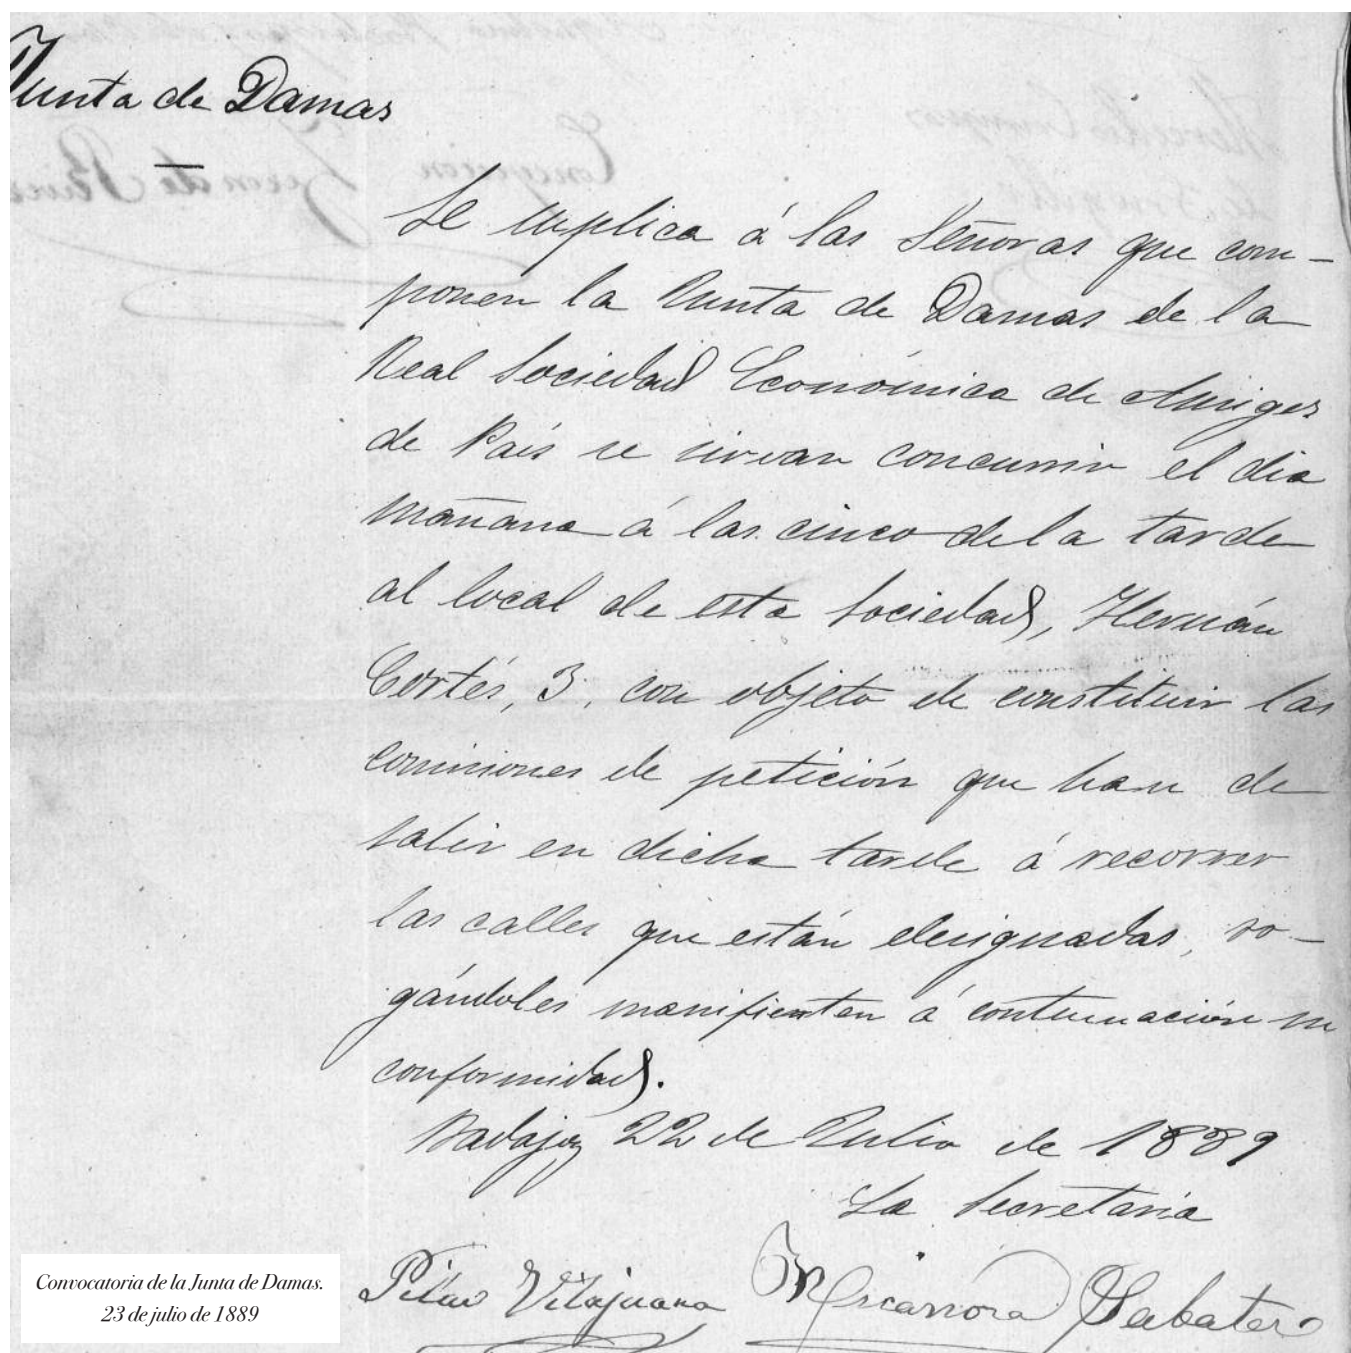 Junta de Damas
Se suplica á las Señoras que com-
ponen la Junta de Damas de la
Real Sociedad Económica de Amigos
de País se sirvan concurrir el dia
mañana á las cinco de la tarde
al local de esta Sociedad, Hernán
Cortés, 3, con objeto de constituir las
comisiones de petición que han de
salir en dicha tarde á recorrer
las calles que están designadas, ro-
gándoles manifiesten á continuación su
conformidad.
Badajoz 22 de Julio de 1889
La Secretaria
Pilar Sabater
Convocatoria de la Junta de Damas.
23 de julio de 1889